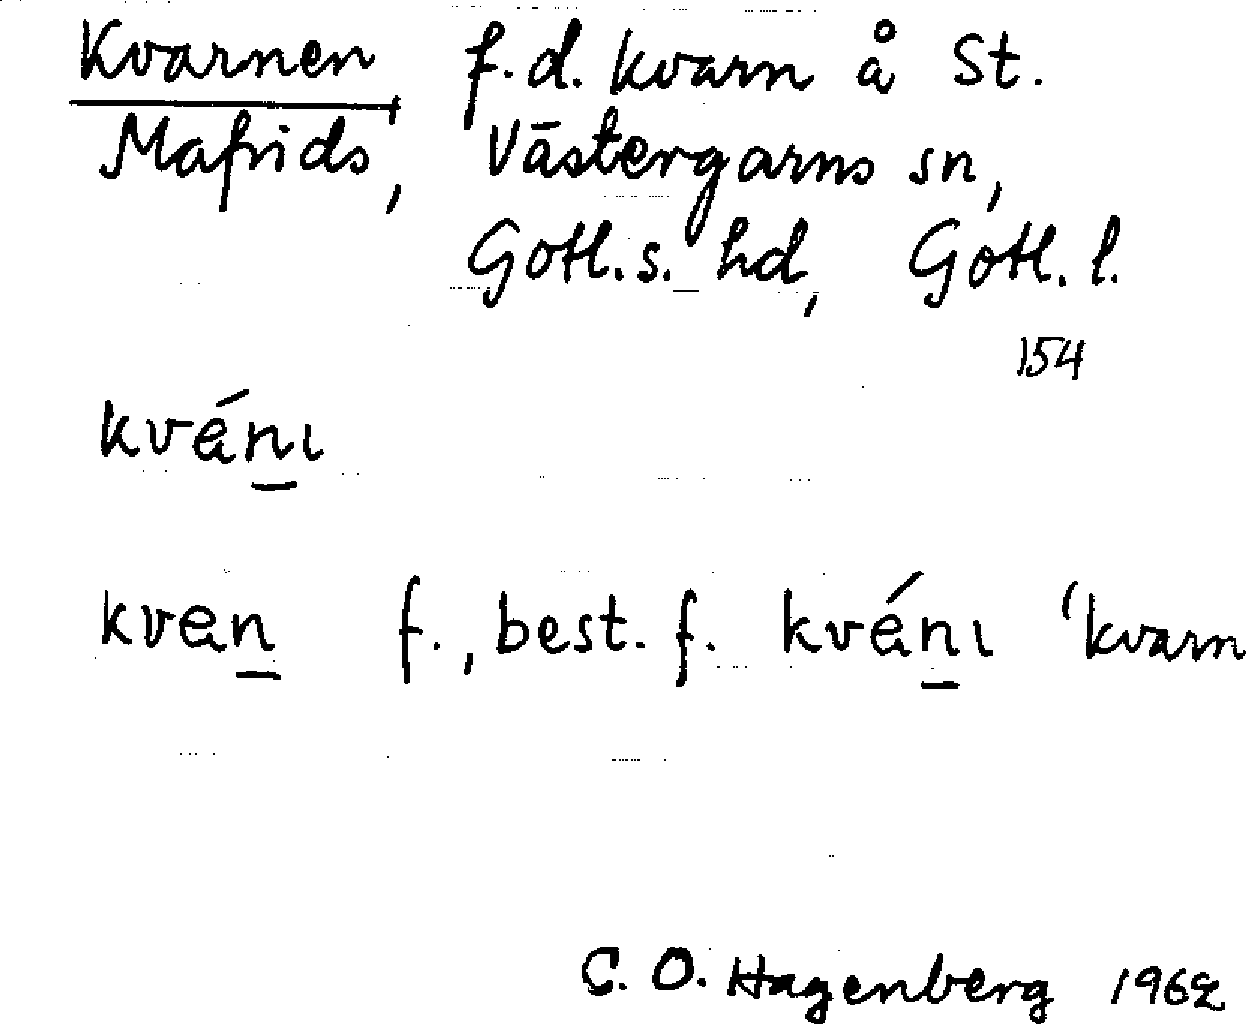 Kvarnen, f.d. kvarn å St.
Mafrids, Västergarns sn,
Gotl.s. hd, Gotl. l.
154
kvánı
kvan f., best. f. kvánı 'kvarn
C. O. Hagenberg 1962